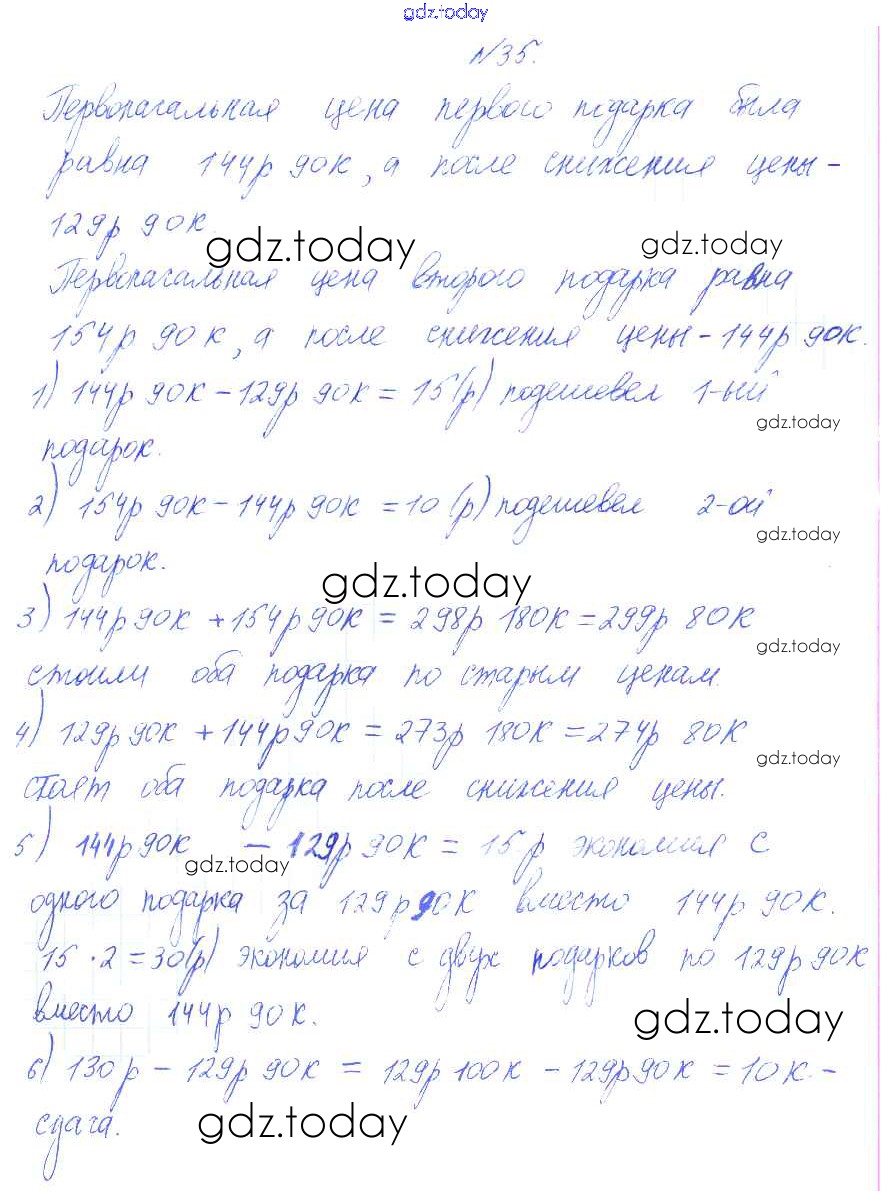 gdz.today
№35.
Первоначальная цена первого подарка была
равна 144р 90к, а после снижения цены -
129р 90к.
gdz.today gdz.today
Первоначальная цена второго подарка равна
154р 90к, а после снижения цены - 144р 90к.
1) 144р 90к - 129р 90к = 15(р) подешевел 1-ый
gdz.today
подарок.
2) 154р 90к - 144р 90к = 10 (р) подешевел 2-ой
gdz.today
подарок.
gdz.today
3) 144р 90к + 154р 90к = 298р 180к = 299р 80к
gdz.today
стоили оба подарка по старым ценам.
4) 129р 90к + 144р 90к = 273р 180к = 274р 80к
gdz.today
стоят оба подарка после снижения цены.
5) 144р 90к - 129р 90к = 15р экономия с
gdz.today
одного подарка за 129р 90к вместо 144р 90к.
15 · 2 = 30(р) экономия с двух подарков по 129р 90к
вместо 144р 90к.
gdz.today
6) 130р - 129р 90к = 129р 100к - 129р 90к = 10к -
сдача.
gdz.today